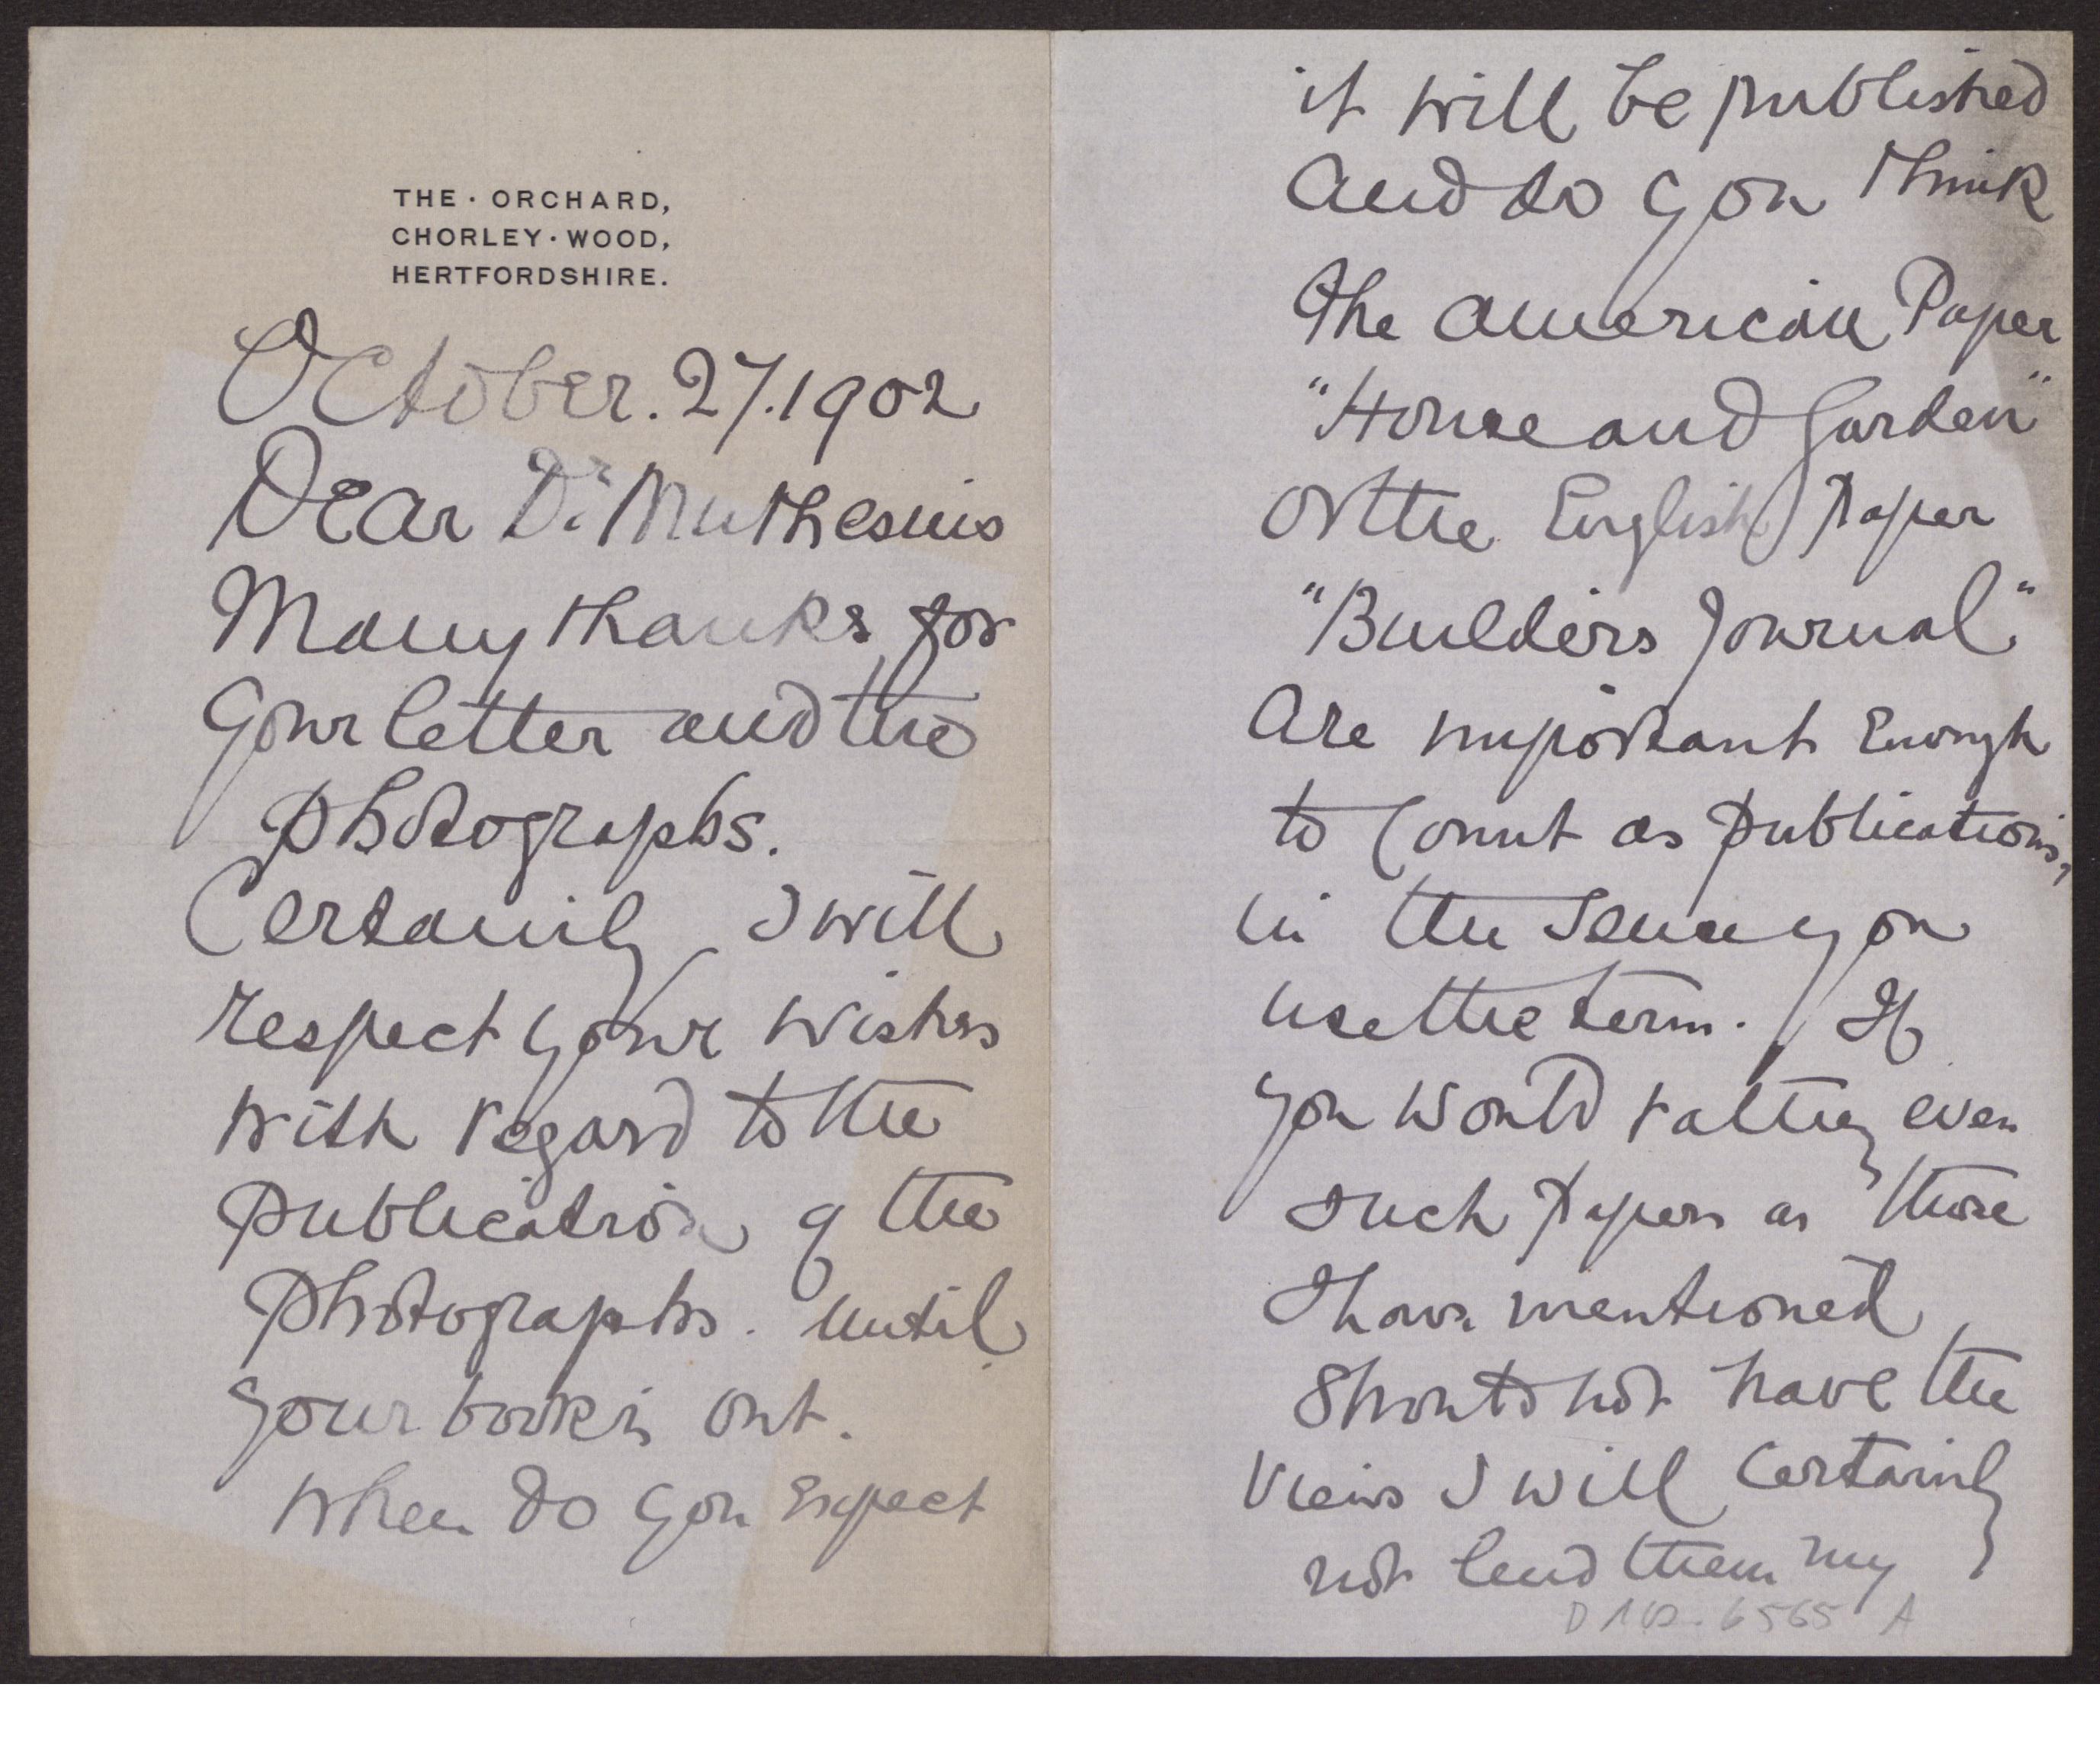 THE · ORCHARD,
CHORLEY · WOOD,
HERTFORDSHIRE.
October. 27. 1902
Dear Dr. Muthesius
Many thanks for
your letter and the
photographs.
Certainly I will
respect your wishes
with regard to the
publication of the
photographs. until
your book is out.
When do you expect
it will be published
and do you think
the American Paper
"House and Garden"
or the English Paper
"Builders Journal"
are important enough
to count as publications,
in the sense you
use the term. If
you would rather even
such papers as those
I have mentioned
should not have the
views I will certainly
not lend them my
6565 A